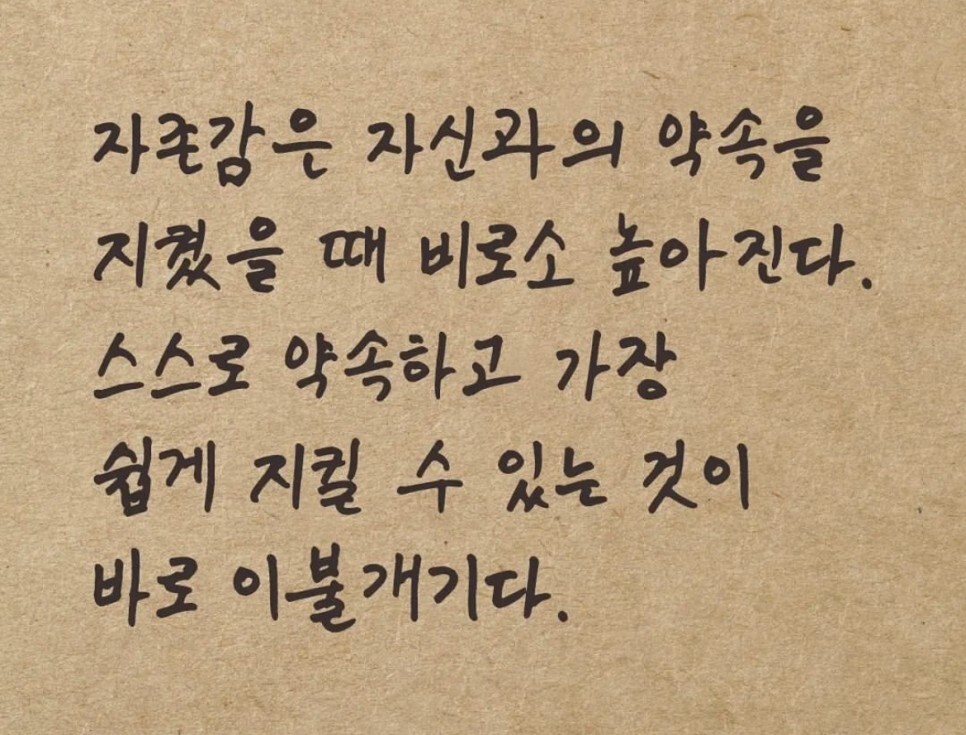 자존감은 자신과의 약속을
지켰을 때 비로소 높아진다.
스스로 약속하고 가장
쉽게 지킬 수 있는 것이
바로 이불개기다.